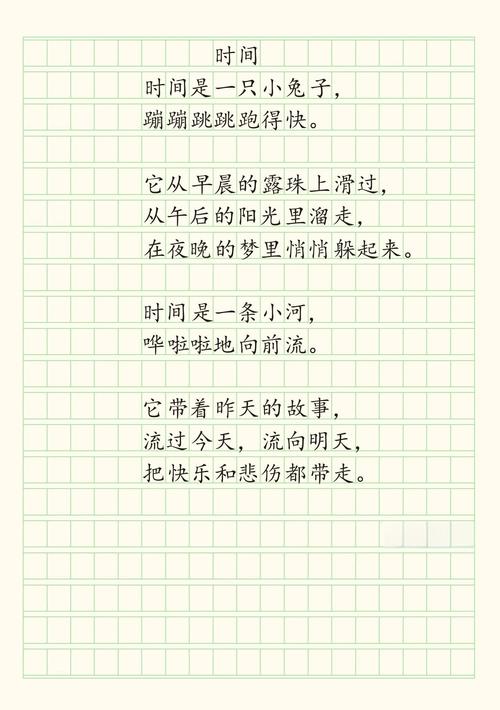 时间
时间是一只小兔子，
蹦蹦跳跳跑得快。
它从早晨的露珠上滑过，
从午后的阳光里溜走，
在夜晚的梦里悄悄躲起来。
时间是一条小河，
哗啦啦地向前流。
它带着昨天的故事，
流过今天，流向明天，
把快乐和悲伤都带走。